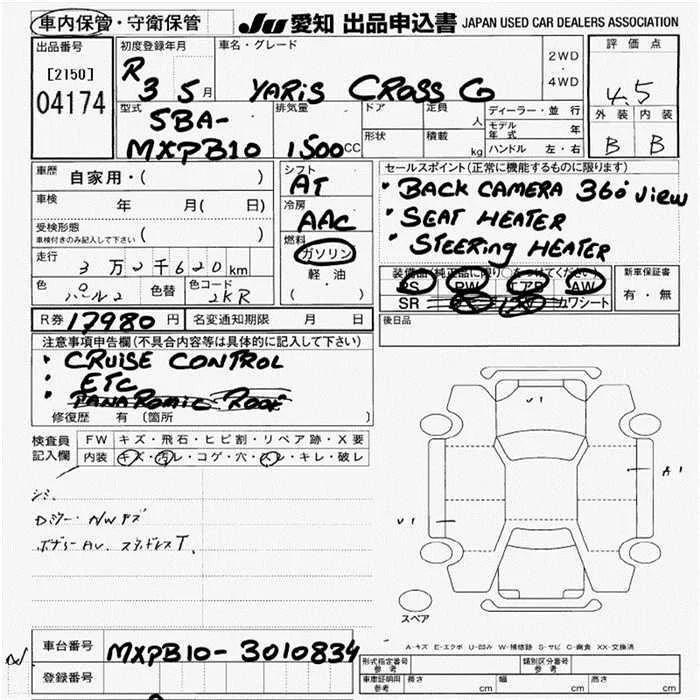 車内保管・守衛保管
JU 愛知 出品申込書 JAPAN USED CAR DEALERS ASSOCIATION
出品番号
[2150]
04174
初度登録年月
R 3 5 月
車名・グレード
YARIS CROSS G
2WD
4WD
評価点
4.5
外装 内装
B B
型式
5BA-
MXPB10
排気量
1500 CC
ドア
定員 人
形状
積載 kg
ディーラー・並行
モデル年式 年
ハンドル 左・右
車歴 自家用・( )
車検 年 月( 日)
受検形態
車検付きのみ記入して下さい ( )
走行 3万2千620km
色 パール2 色替 色コード 2KR
シフト
AT
冷房
AAC
燃料
ガソリン
軽油
( )
セールスポイント(正常に機能するものに限ります)
・BACK CAMERA 360° view
・SEAT HEATER
・STEERING HEATER
装備品(純正品に限り○をつけてください)
PS PW エアB AW
SR カワシート
新車保証書
有・無
R券 17980 円 名変通知期限 月 日
後日品
注意事項申告欄(不具合内容等は具体的に記入して下さい)
・CRUISE CONTROL
・ETC
・PANAROMIC ROOF
修復歴 有 〔箇所 〕
検査員記入欄
FW キズ・飛石・ヒビ割・リペア跡・X要
内装 キズ・汚レ・コゲ・穴・スレ・キレ・破レ
シミ
NWキズ
スタッドレスT.
U1
A1
U1
スペア
A-キズ E-エクボ U-凹み W-補修跡 S-サビ C-腐食 XX-交換済
車台番号 MXPB10-3010834
登録番号
形式指定番号 参考
類別区分番号 参考
車庫証明用 参考 長さ cm 幅 cm 高さ cm